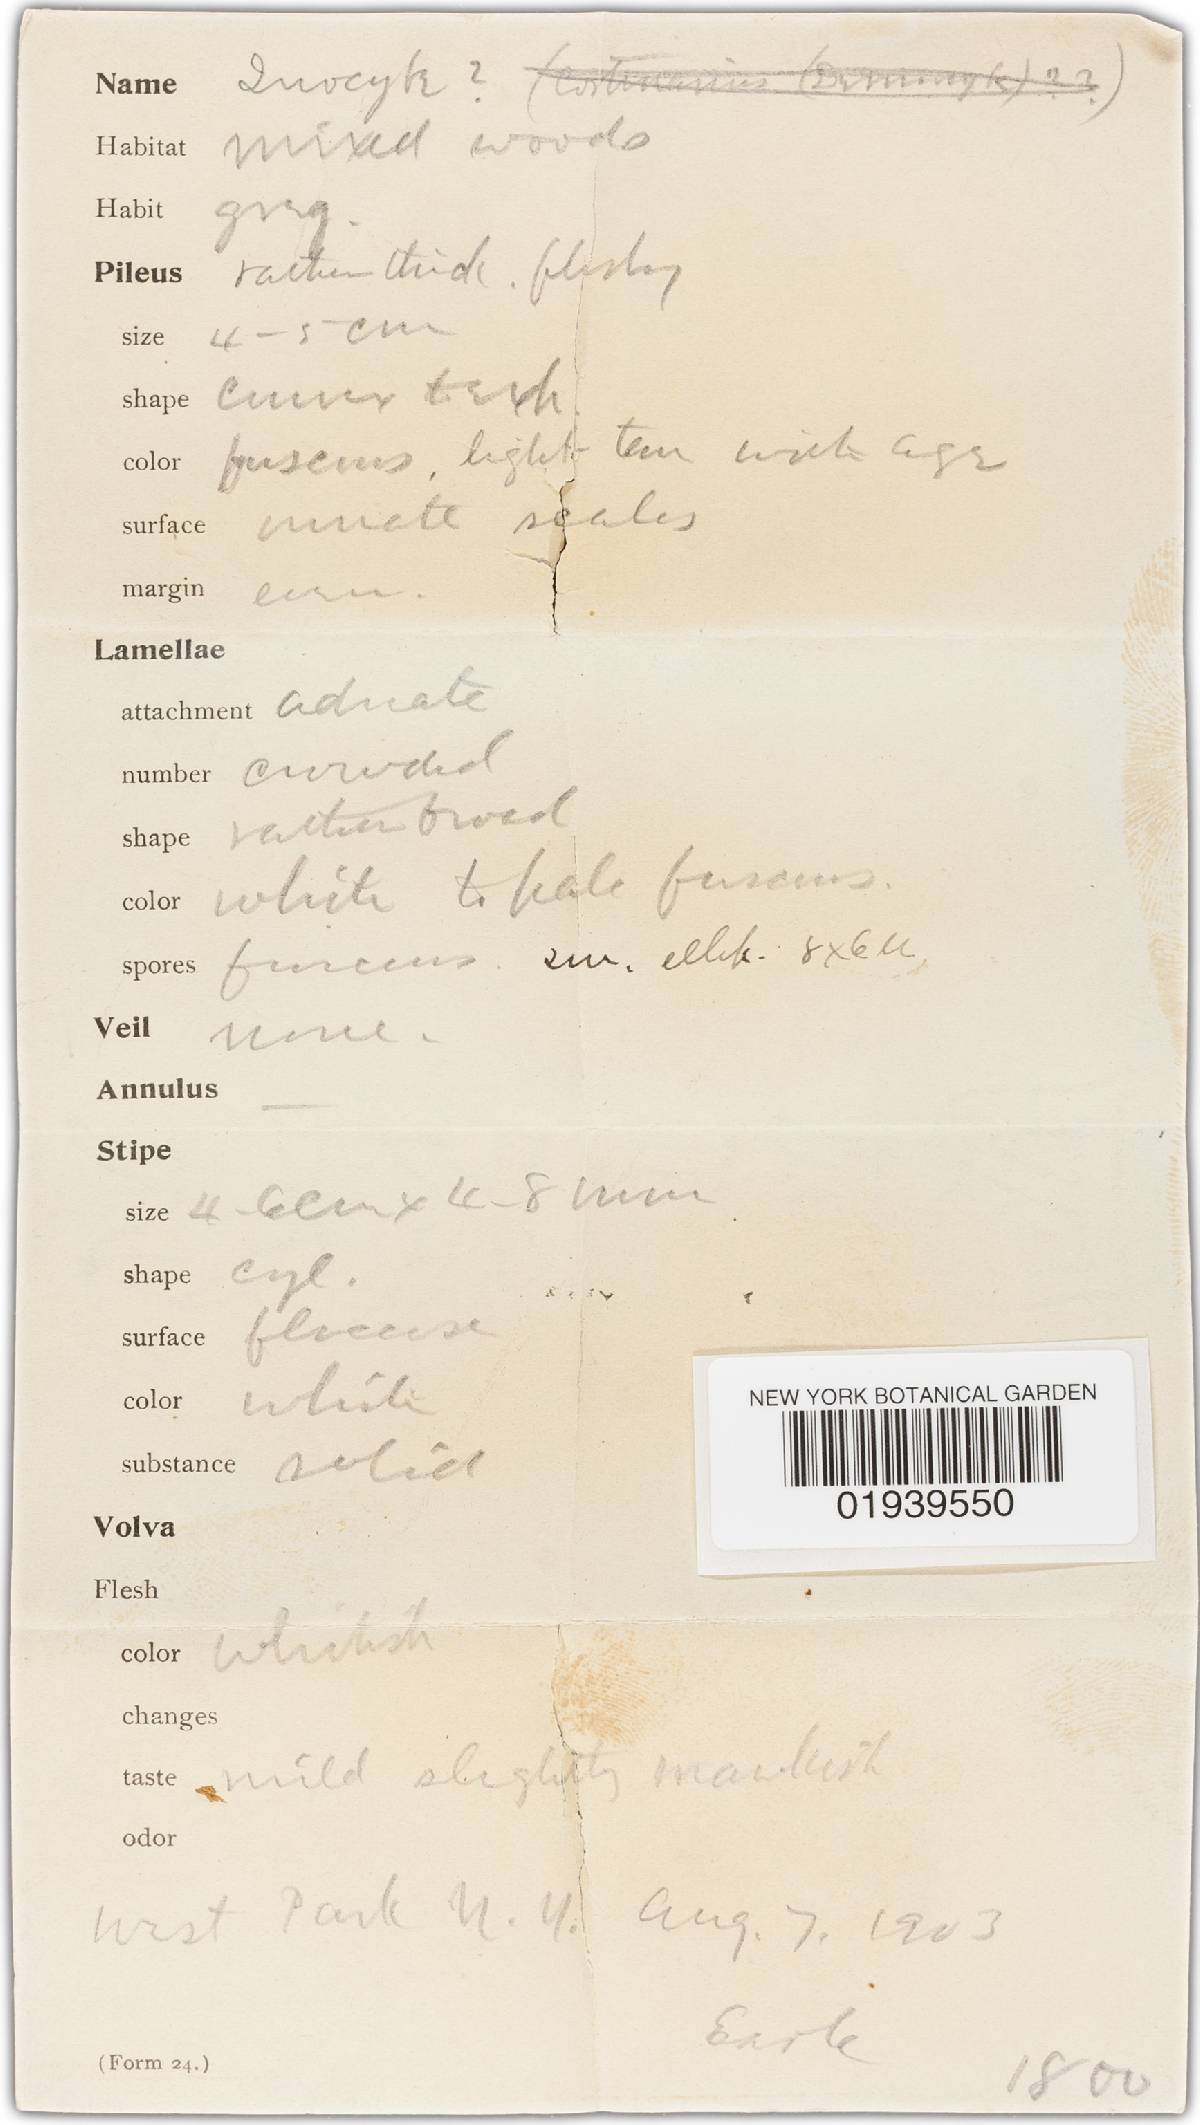 Name Inocybe ? (Cortinarius (Dermocybe) ? ?)
Habitat mixed woods
Habit greg.
Pileus rather thick. fleshy
size 4-5 cm
shape convex to exp.
color fuscous, light tan with age
surface innate scales
margin even.
Lamellae
attachment adnate
number crowded
shape rather broad
color white to pale fuscous.
spores fuscous. sm. ellip. 8x6 u
Veil none.
Annulus —
Stipe
size 4-6 cm x 4-8 mm
shape cyl.
surface floccose
color white
substance solid
Volva
NEW YORK BOTANICAL GARDEN
01939550
Flesh
color whitish
changes
taste mild slightly mawkish
odor
West Park N. Y. Aug. 7. 1903
Earle
(Form 24.) 1800